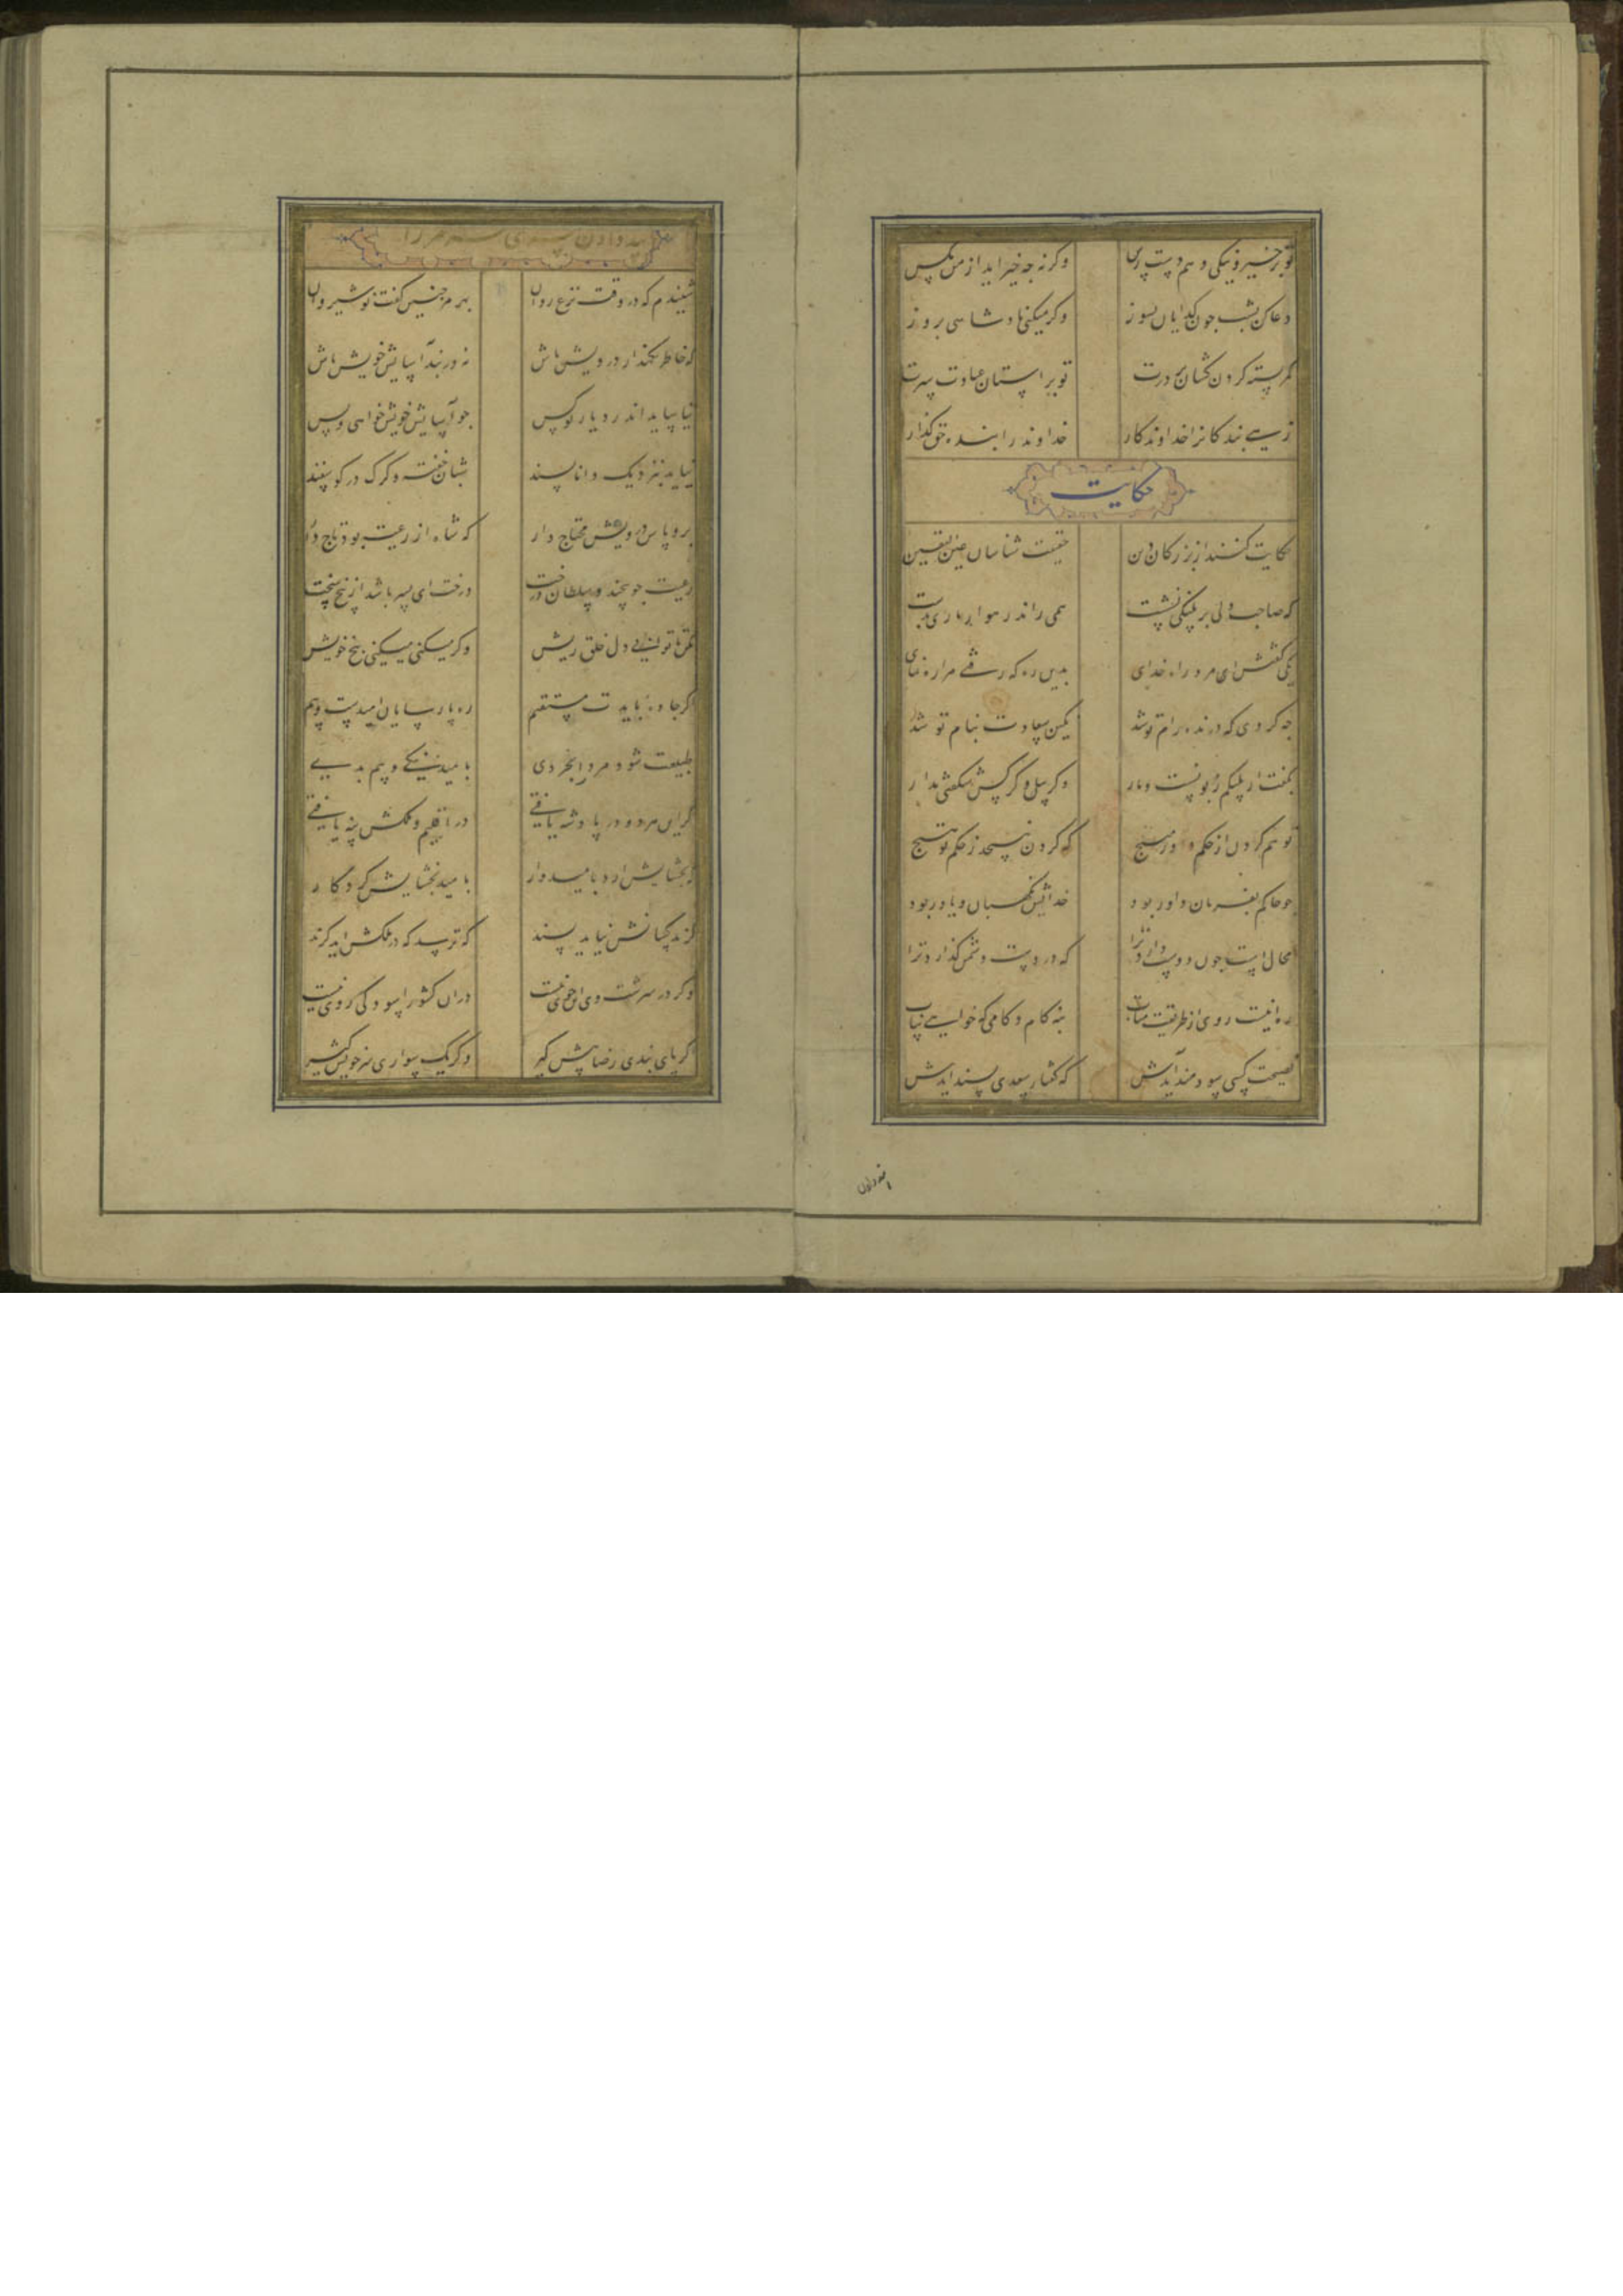 تو بر خیر و نیکی دهم دست رس وکرنه چه خیر اید از من بکس
دعا کن بشب چون کدایان بسوز وکر میکنی پادشاهی بروز
کمر بسته کردن کشان بر درت تو بر استان عبادت سرت
زهی بندکانرا خداوندکار خداوند را بنده حق کذار
حکایت
حکایت کنند از بزرکان دین حقیقت شناسان عین الیقین
که صاحب دلی بر پلنکی نشست همی راند رهوار و ماری بدست
یکی کفتش ای مرد راه خدای بدین ره که رفتی مرا ره نمای
چه کردی که درنده رام تو شد نکین سعادت بنام تو شد
بکفت ار پلنکم زبونست و مار وکر پیل و کرکس شکفتی مدار
تو هم کردن از حکم داور مپیچ که کردن نپیچد ز حکم تو هیچ
چو حاکم بفرمان داور بود خدایش نکهبان و یاور بود
محال است چون دوست دارد ترا که در دست دشمن کذارد ترا
ره اینست روی از طریقت متاب بنه کام و کامی که خواهی بیاب
نصیحت کسی سودمند آیدش که کفتار سعدی پسند ایدش
پند دادن
پند دادن کسری هرمز را
شنیدم که در وقت نزع روان بهرمز چنین کفت نوشیروان
که خاطر نکهدار درویش باش نه در بند آسایش خویش باش
نیاساید اندر دیار تو کس چو آسایش خویش خواهی و بس
نیاید بنزدیک دانا پسند شبان خفته و کرک در کوسفند
برو پاس درویش محتاج دار که شاه از رعیت بود تاجدار
رعیت چو بیخند و سلطان درخت درخت ای پسر باشد از بیخ سخت
مکن تا توانی دل خلق ریش وکر میکنی میکنی بیخ خویش
اکر جاده بایدت مستقیم ره پارسایان امیدست و بیم
طبیعت شود مرد را بخردی بامید نیکی و بیم بدی
کر این هر دو در پادشه یافتی در اقلیم و ملکش پنه یافتی
که بخشایش ارد بامیدوار بامید بخشایش کردکار
کزند کسانش نیاید پسند که ترسد که در ملکش اید کزند
وکر در سرشت وی این خوی نیست دران کشور اسودکی روی نیست
اکر پای بندی رضا پیش کیر وکر یک سواری سر خویش کیر